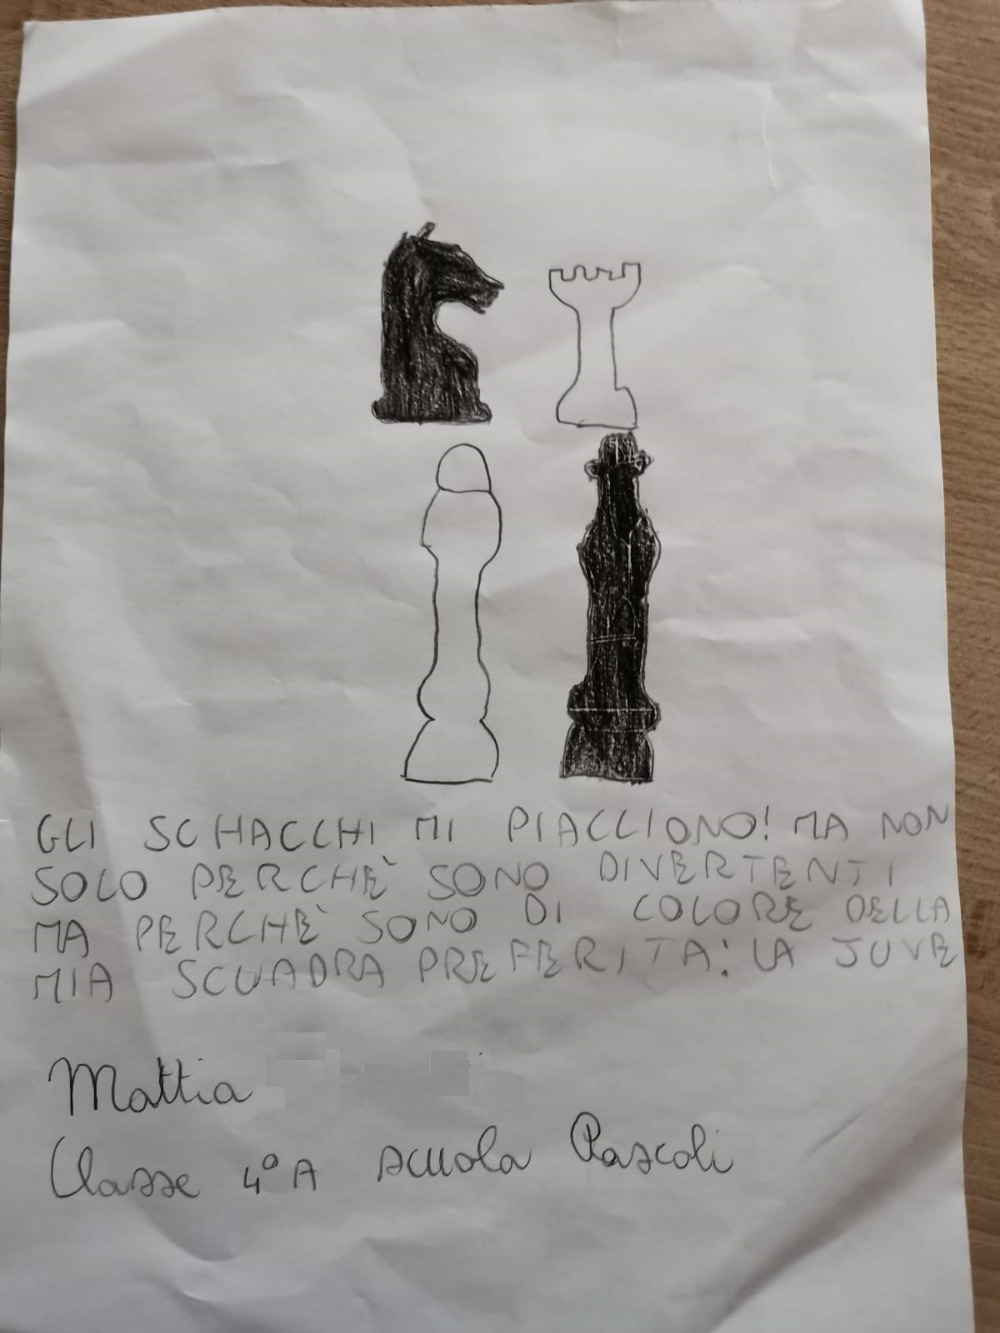 GLI SCHACCHI MI PIACCIONO! MA NON
SOLO PERCHÈ SONO DIVERTENTI
MA PERCHÈ SONO DI COLORE DELLA
MIA SCUADRA PREFERITA: LA JUVE
Mattia
Classe 4°A scuola Pascoli